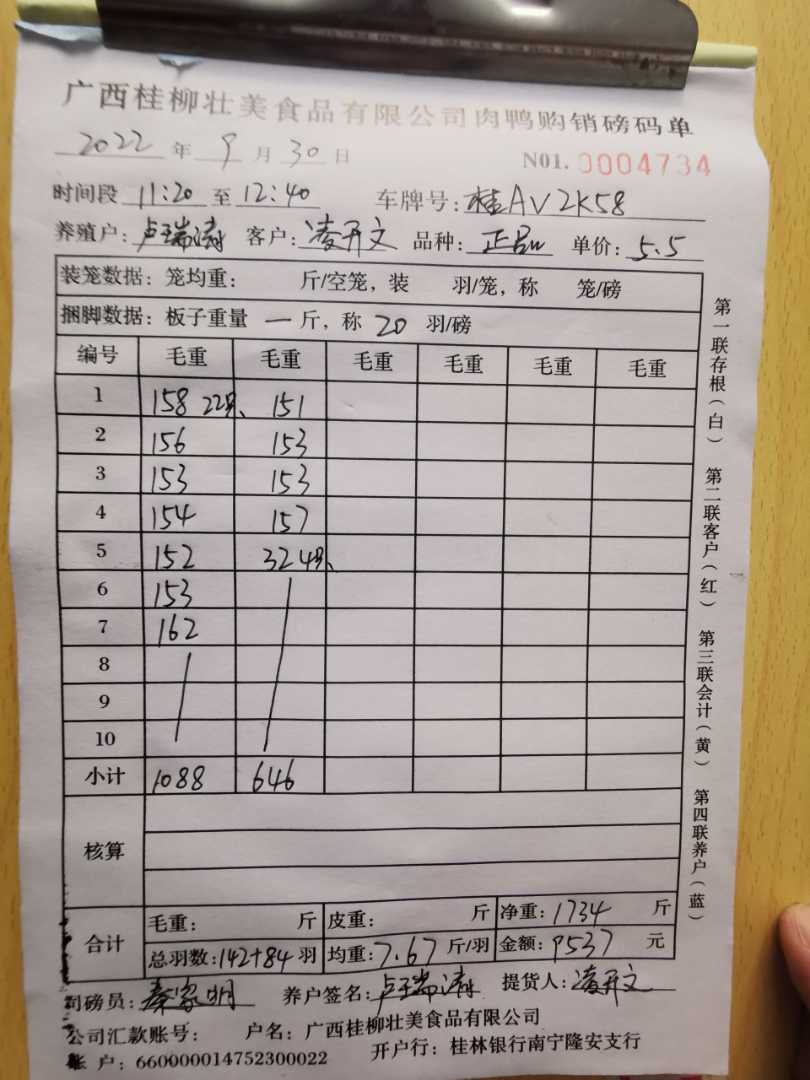 广西桂柳壮美食品有限公司肉鸭购销磅码单
2022 年 9 月 30 日 N01. 0004734
时间段 11:20 至 12:40 车牌号: 桂AV2K58
养殖户: 卢瑞涛 客户: 凌开文 品种: 正品 单价: 5.5
装笼数据: 笼均重: 斤/空笼, 装 羽/笼, 称 笼/磅
捆脚数据: 板子重量 一 斤, 称 20 羽/磅
编号 毛重 毛重 毛重 毛重 毛重 毛重
1 158 22只 151
2 156 153
3 153 153
4 154 157
5 152 32 4只
6 153
7 162
8
9
10
小计 1088 646
核算
合计 毛重: 斤 皮重: 斤 净重: 1734 斤
总羽数: 142+84 羽 均重: 7.67 斤/羽 金额: 9537 元
司磅员: 秦家明 养户签名: 卢瑞涛 提货人: 凌开文
公司汇款账号: 户名: 广西桂柳壮美食品有限公司
账 户: 660000014752300022 开户行: 桂林银行南宁隆安支行
第一联存根(白) 第二联客户(红) 第三联会计(黄) 第四联养户(蓝)